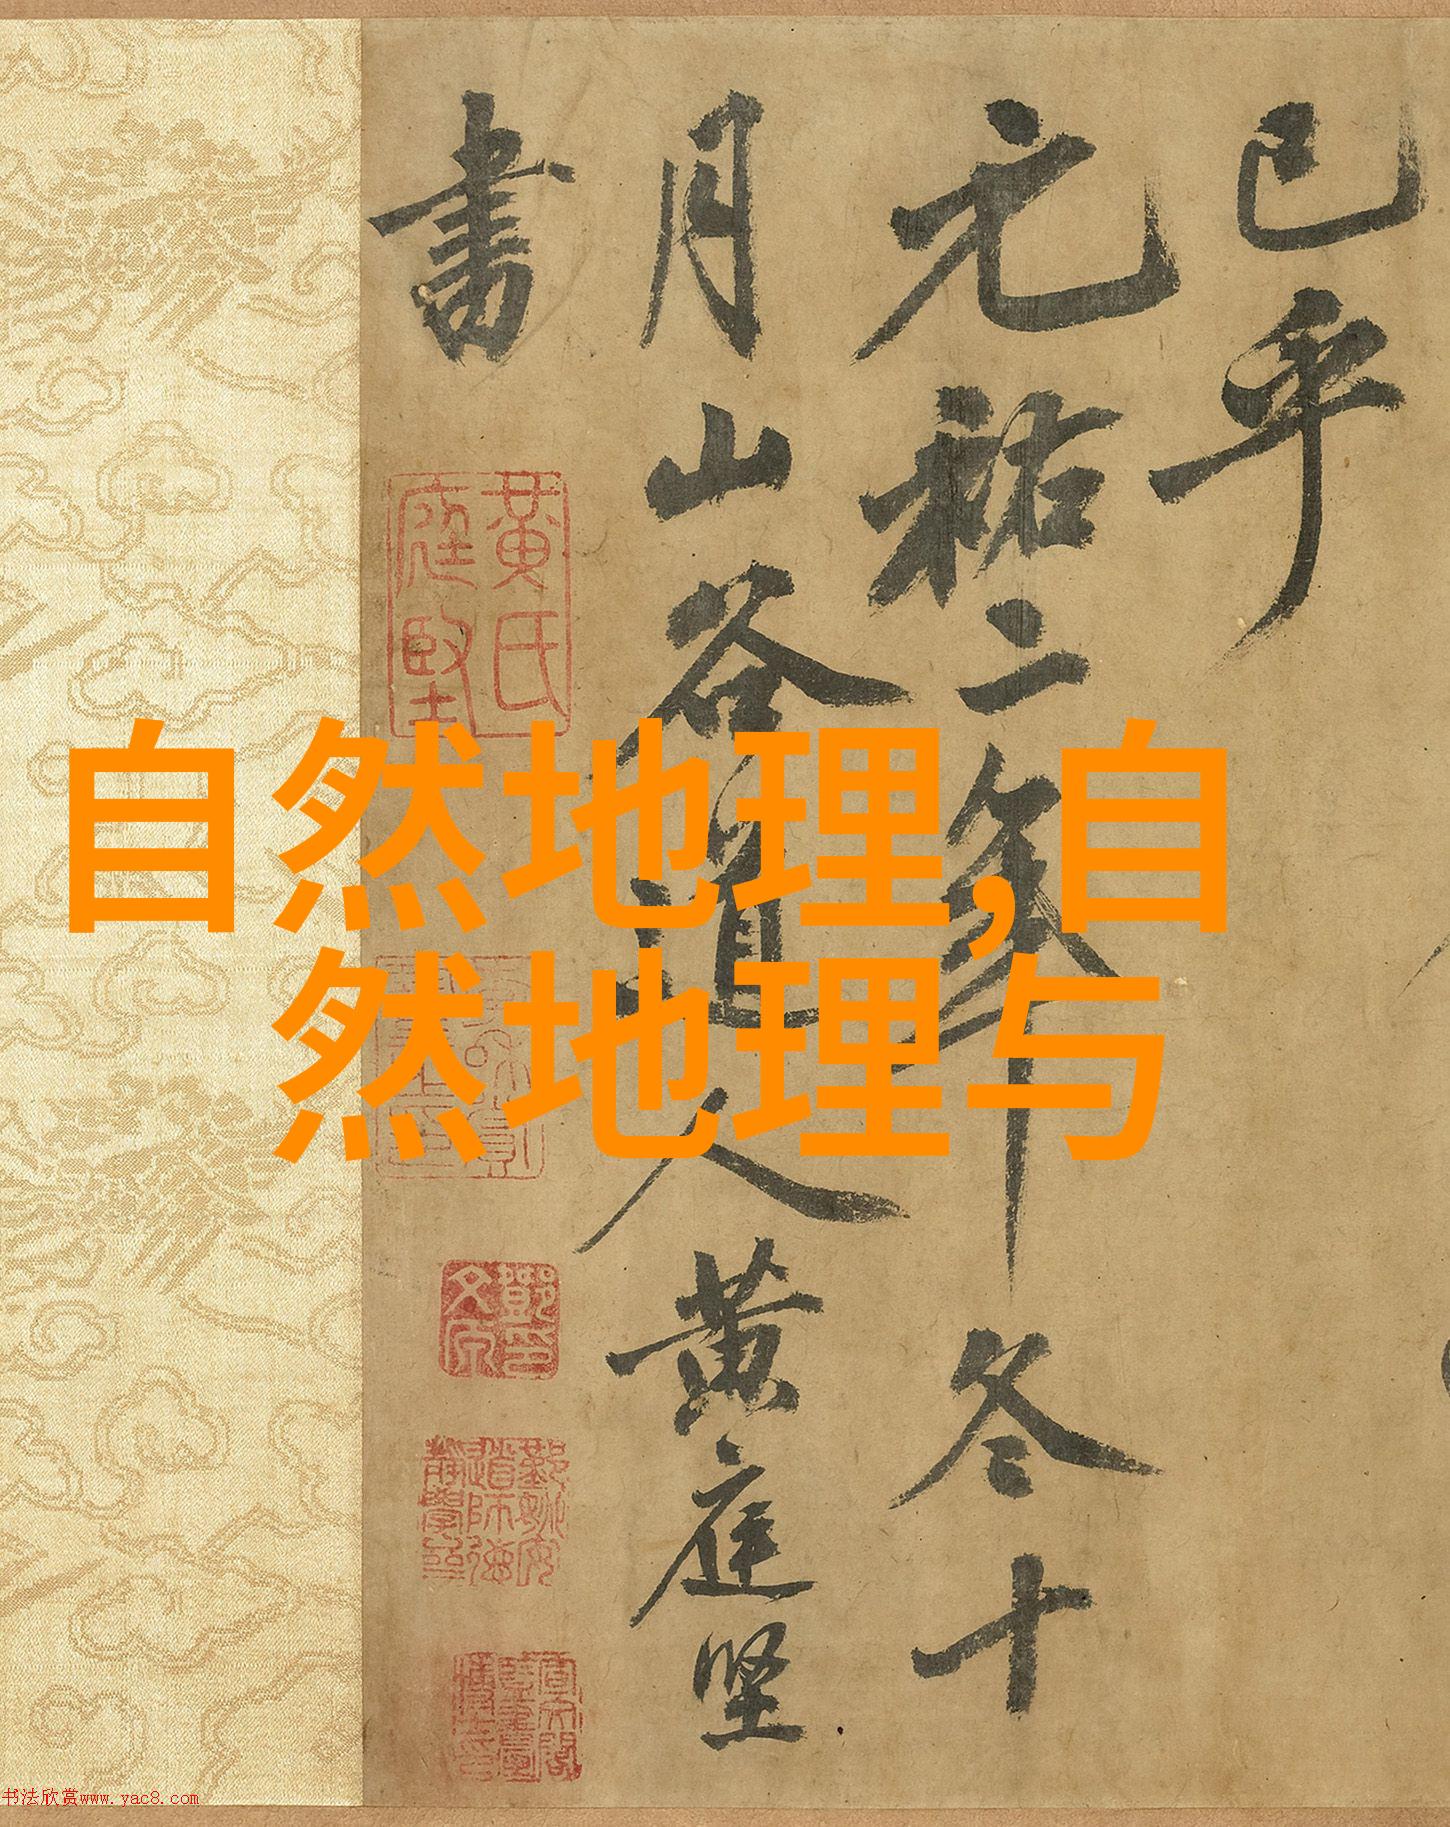 已乎
元祐二年冬十
月山谷道人黄庭坚
書
黄氏
庭坚
自然地理,自
然地理与
书法欣赏www.yac8.com